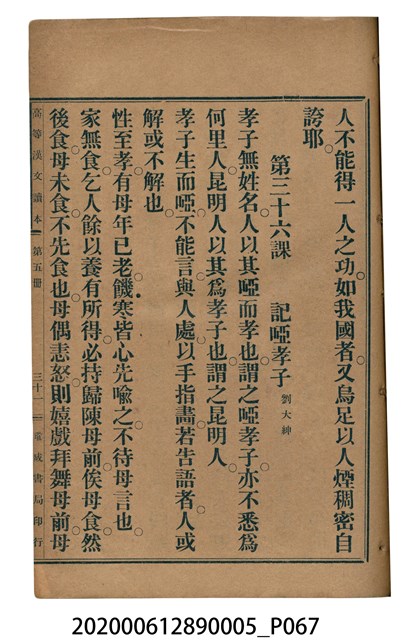 人不能得一人之功。如我國者。又烏足以人煙稠密自
誇耶。
第三十六課 記啞孝子 劉大紳
孝子無姓名。人以其啞而孝也。謂之啞孝子。亦不悉爲
何里人。昆明人以其爲孝子也。謂之昆明人。
孝子生而啞。不能言。與人處。以手指畫。若告語者。人或
解或不解也。
性至孝。有母年已老。饑寒皆心先喻之。不待母言也。
家無食。乞人餘以養。有所得。必持歸陳母前。俟母食。然
後食。母未食。不先食也。母偶恚怒。則嬉戲拜舞母前。母
高等漢文讀本 第五冊 三十一 成書局印行
202000612890005_P067